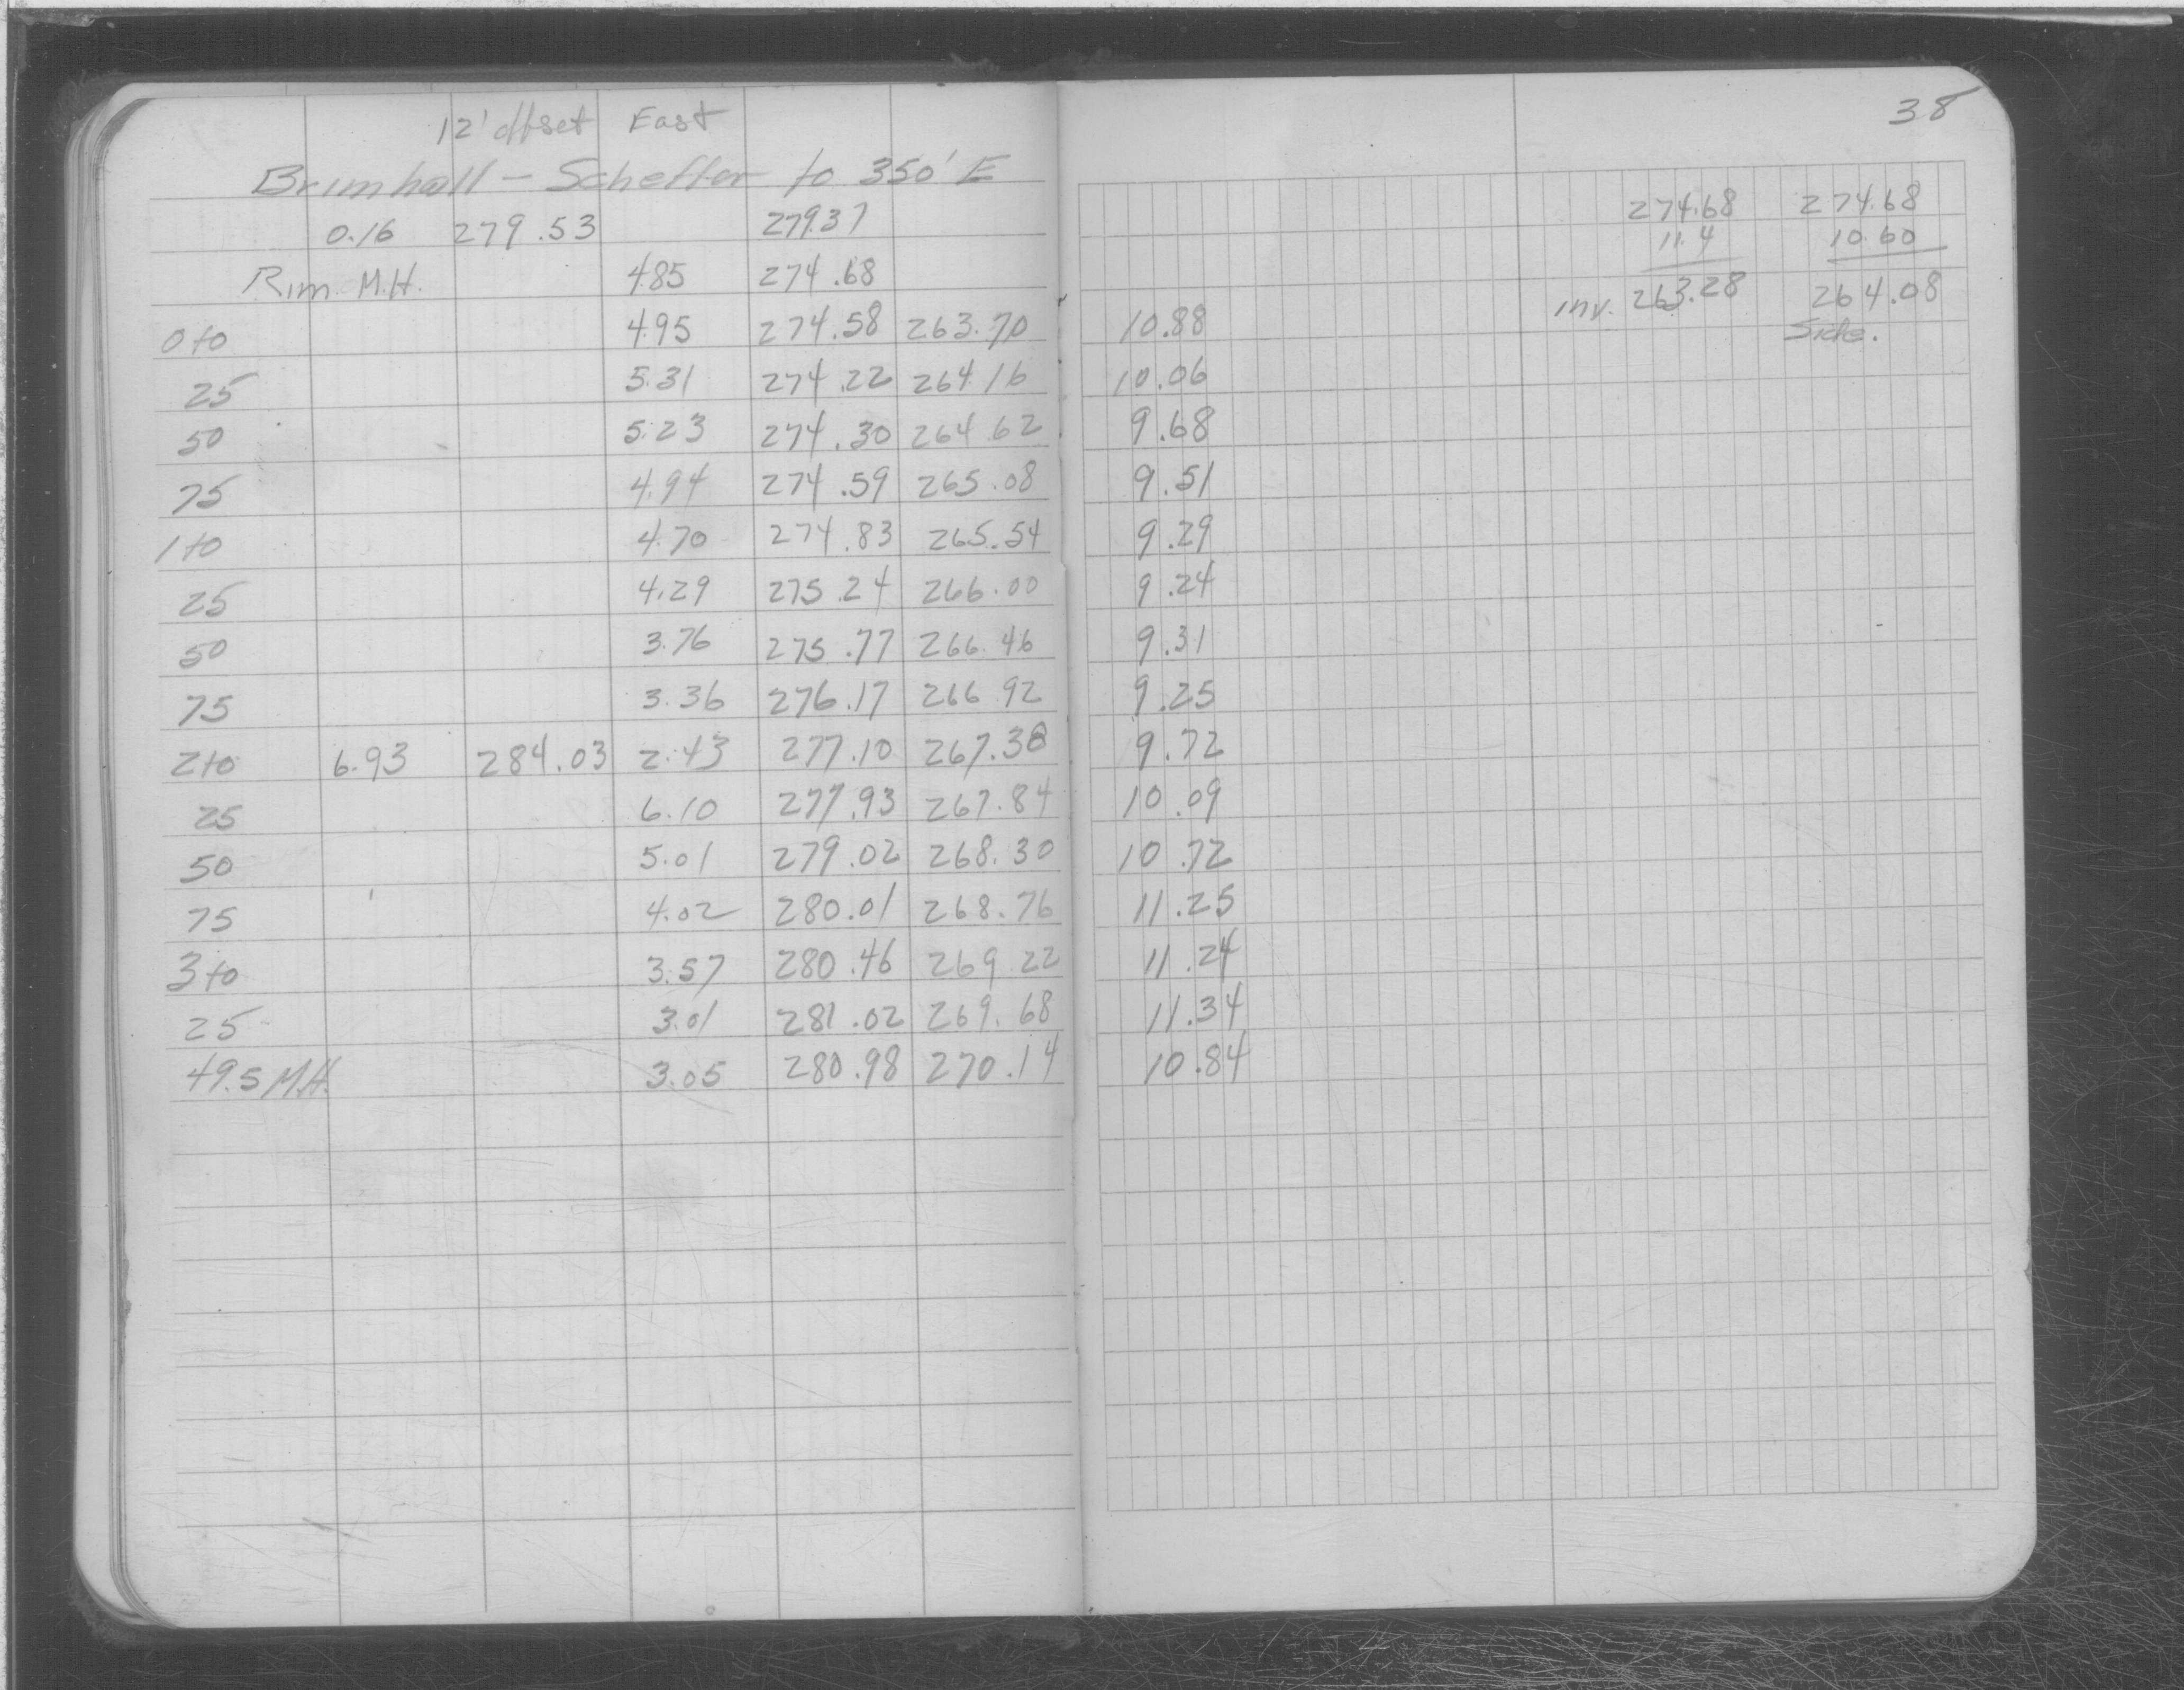 38
12' offset East
Brimhall - Scheffer to 350' E
0.16 279.53 279.37
Rim M.H. 4.85 274.68
0+0 4.95 274.58 263.70 10.88
25 5.31 274.22 264.16 10.06
50 5.23 274.30 264.62 9.68
75 4.94 274.59 265.08 9.51
1+0 4.70 274.83 265.54 9.29
25 4.29 275.24 266.00 9.24
50 3.76 275.77 266.46 9.31
75 3.36 276.17 266.92 9.25
2+0 6.93 284.03 2.43 277.10 267.38 9.72
25 6.10 277.93 267.84 10.09
50 5.01 279.02 268.30 10.72
75 4.02 280.01 268.76 11.25
3+0 3.57 280.46 269.22 11.24
25 3.01 281.02 269.68 11.34
49.5 M.H. 3.05 280.98 270.14 10.84
274.68 274.68
11.4 10.60
inv. 263.28 264.08
Side.